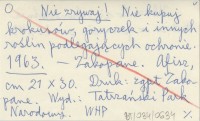 O Nie zrywaj! Nie kupuj
krokusów, goryczek i innych
roślin podlegających ochronie.
1963. – Zakopane. Afisz,
cm 21 x 30. Druk: zgaz Zako-
pane. Wyd.: Tatrzański Park
Narodowy. WHP